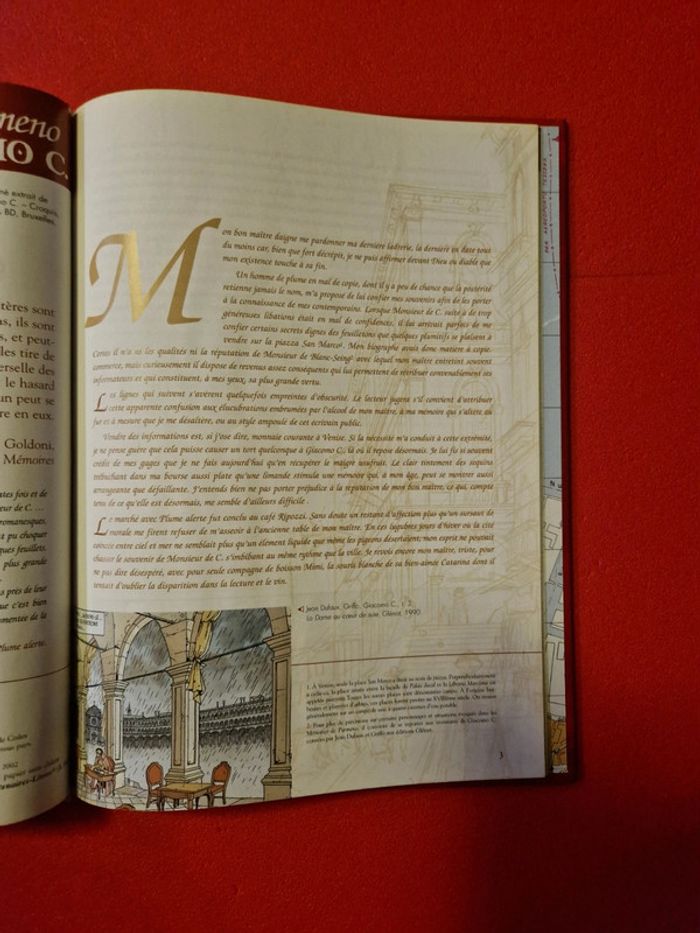 meno
IO C.
né extrait de
o C. – Croquis,
BD, Bruxelles,
tères sont
s, ils sont
s, et peut-
les tire de
erselle des
le hasard
un peut se
re en eux.
Goldoni,
Mémoires
ates fois et de
eur de C. ...
romanesques,
nt pu choquer
ques feuillets.
plus grande
près de leur
que c'est bien
mentée de la
Plume alerte.
2002
Mon bon maître daigne me pardonner ma dernière ladrerie, la dernière en date tout
du moins car, bien que fort décrépit, je ne puis affirmer devant Dieu ou diable que
mon existence touche à sa fin.
Un homme de plume en mal de copie, dont il y a peu de chance que la postérité
retienne jamais le nom, m'a proposé de lui confier mes souvenirs afin de les porter
à la connaissance de mes contemporains. Lorsque Monsieur de C. suite à de trop
généreuses libations était en mal de confidences, il lui arrivait parfois de me
confier certains secrets dignes des feuilletons que quelques plumitifs se plaisent à
vendre sur la piazza San Marco¹. Mon biographe avait donc matière à copie.
Certes il n'a ni les qualités ni la réputation de Monsieur de Blanc-Seing² avec lequel mon maître entretint souvent
commerce, mais curieusement il dispose de revenus assez conséquents qui lui permettent de rétribuer convenablement ses
informateurs et qui constituent, à mes yeux, sa plus grande vertu.
Les lignes qui suivent s'avèrent quelquefois empreintes d'obscurité. Le lecteur jugera s'il convient d'attribuer
cette apparente confusion aux élucubrations embrumées par l'alcool de mon maître, à ma mémoire qui s'altère au
fur et à mesure que je me désaltère, ou au style ampoulé de cet écrivain public.
Vendre des informations est, si j'ose dire, monnaie courante à Venise. Si la nécessité m'a conduit à cette extrémité,
je ne pense guère que cela puisse causer un tort quelconque à Giacomo C., là où il repose désormais. Je lui fis si souvent
crédit de mes gages que je ne fais aujourd'hui qu'en récupérer le maigre usufruit. Le clair tintement des sequins
trébuchant dans ma bourse aussi plate qu'une limande stimule une mémoire qui, à mon âge, peut se montrer aussi
arrangeante que défaillante. J'entends bien ne pas porter préjudice à la réputation de mon bon maître, ce qui, compte
tenu de ce qu'elle est désormais, me semble d'ailleurs difficile.
Le marché avec Plume alerte fut conclu au café Ripozzi. Sans doute un restant d'affection plus qu'un sursaut de
morale me firent refuser de m'asseoir à l'ancienne table de mon maître. En ces lugubres jours d'hiver où la cité
coincée entre ciel et mer ne semblait plus qu'un élément liquide que même les pigeons désertaient, mon esprit ne pouvait
chasser le souvenir de Monsieur de C. s'imbibant au même rythme que la ville. Je revois encore mon maître, triste, pour
ne pas dire désespéré, avec pour seule compagne de boisson Mimi, la souris blanche de sa bien-aimée Catarina dont il
tentait d'oublier la disparition dans la lecture et le vin.
Jean Dufaux, Griffo, Giacomo C., t. 3,
La Dame au cœur de suie, Glénat, 1990.
1. À Venise, seule la place San Marco a droit au nom de piazza. Perpendiculairement
à celle-ci, la place située entre la façade du Palais ducal et la Libreria Marciana est
appelée piazzetta. Toutes les autres places sont dénommées campo. À l'origine
2. Pour plus de précisions sur certains personnages et situations évoqués dans les
Mémoires de Parmeno, il convient de se reporter aux aventures de Giacomo C.
contées par Jean Dufaux et Griffo aux éditions Glénat.
3